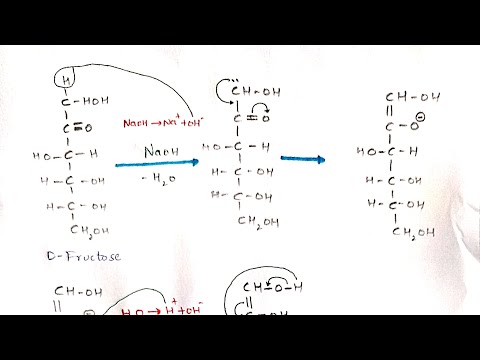 H
C - HOH
C = O
HO - C - H
H - C - OH
H - C - OH
CH2OH
D-Fructose
NaOH → Na+ + OH-
NaOH
- H2O
CH - OH
C = O
HO - C - H
H - C - OH
H - C - OH
CH2OH
CH - OH
C - O⊖
HO - C - H
H - C - OH
H - C - OH
CH2OH
CH - OH
C
H2O → H+ + OH-
CH = O - H
C - OH